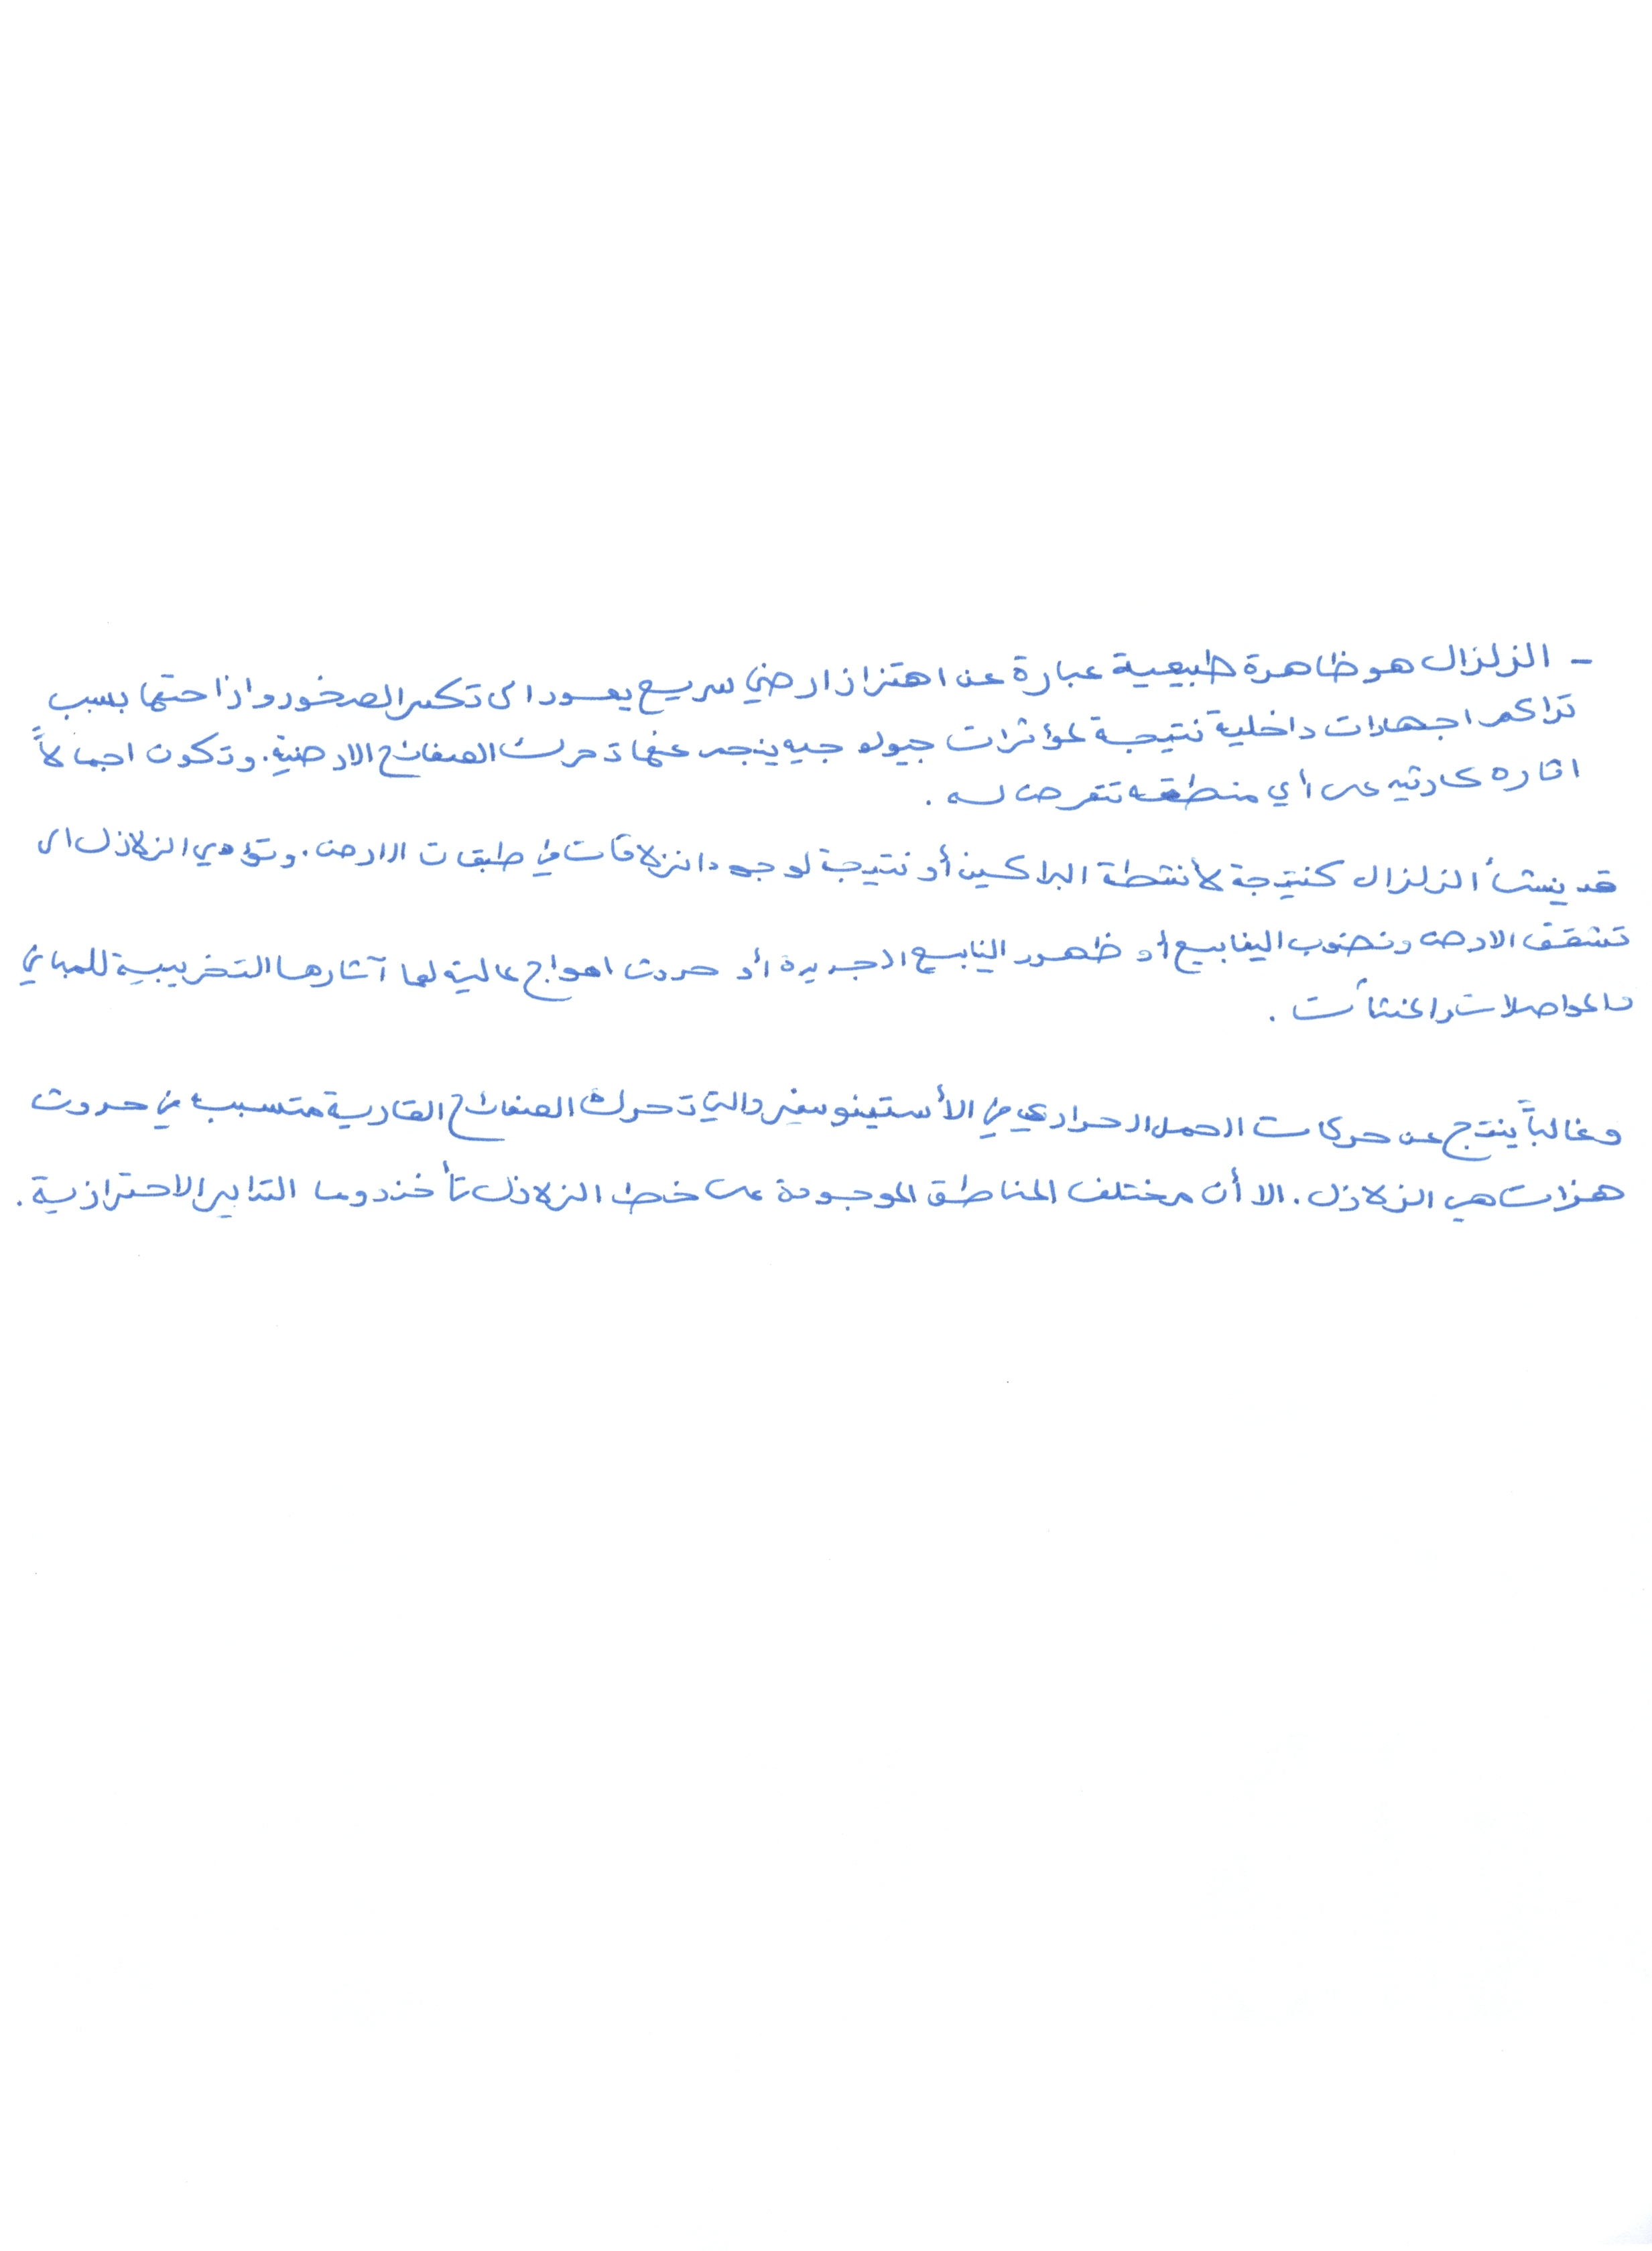 - الزلزال هو ظاهرة طبيعية عبارة عن اهتزاز ارضي سريع يعود الى تكسر الصخور وازاحتها بسبب
تراكم اجهادات داخلية نتيجة لمؤثرات جيولوجيه ينجم عنها تحرك الصفائح الارضية. وتكون اجمالاً
اثاره كارثيه على أي منطقه تتعرض له .
قد ينشأ الزلزال كنتيجة لأنشطة البراكين أو نتيجة لوجود انزلاقات في طبقات الارض. وتؤدي الزلازل الى
تشقق الارض ونضوب الينابيع أو ظهور الينابيع الجديدة أو حدوث امواج عالية لها آثارها التخريبية للمباني
والمواصلات والمنشأت .
وغالباً ينتج عن حركات الحمل الحراري في الأستينوسفير والتي تحرك الصفائح القارية متسببة في حدوث
هزات هي الزلازل. الا أن مختلف المناطق الموجودة على خط الزلازل تأخذ دوما التدابير الاحترازية.